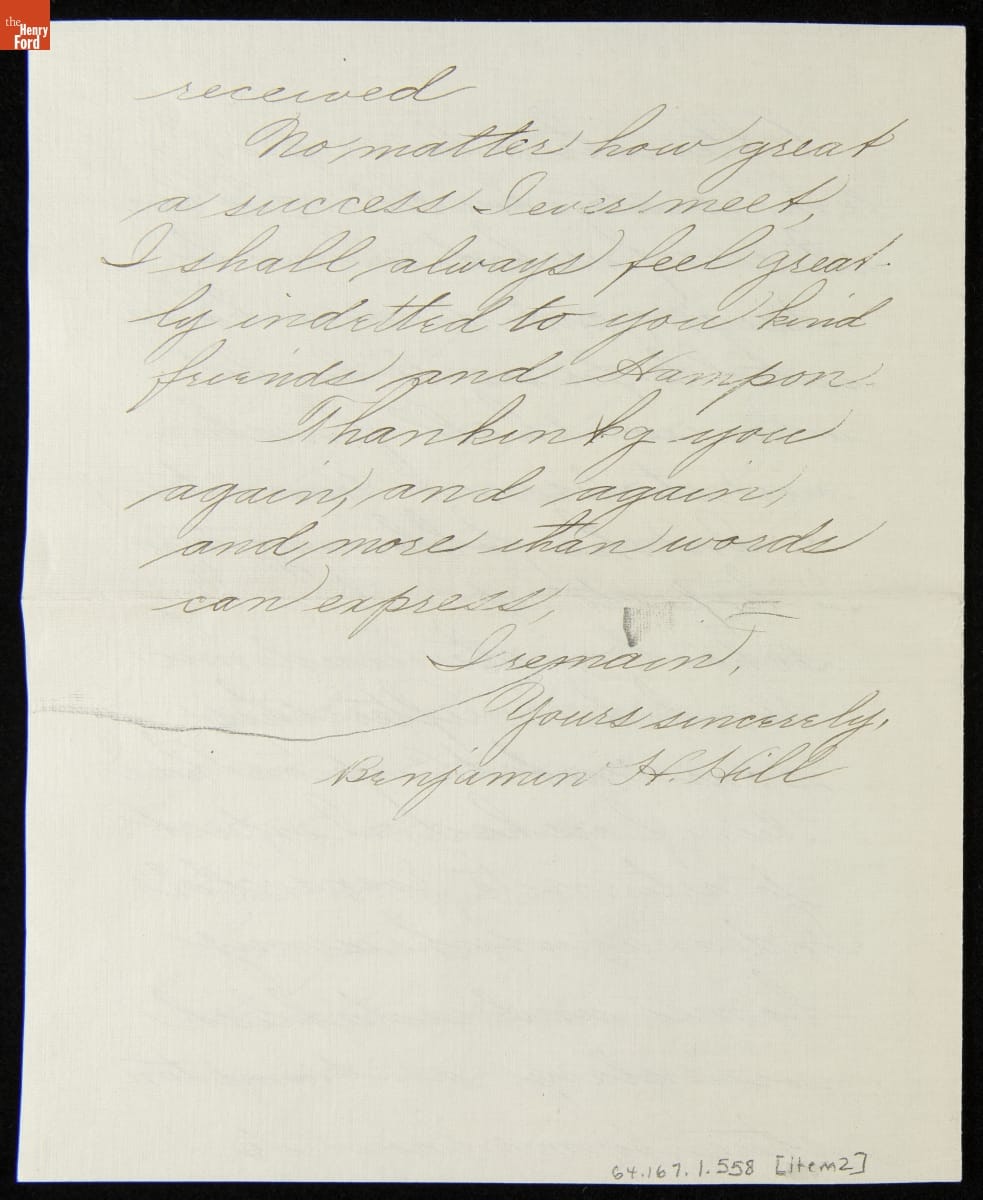 the
Henry
Ford
received
No matter how great
a success I ever meet,
I shall always feel great-
ly indetted to you kind
friends and Hampon.
Thankinkg you
again, and again,
and more than words
can express,
I remain,
Yours sincerely,
Benjamin H. Hill
64.167.1.558 [item2]